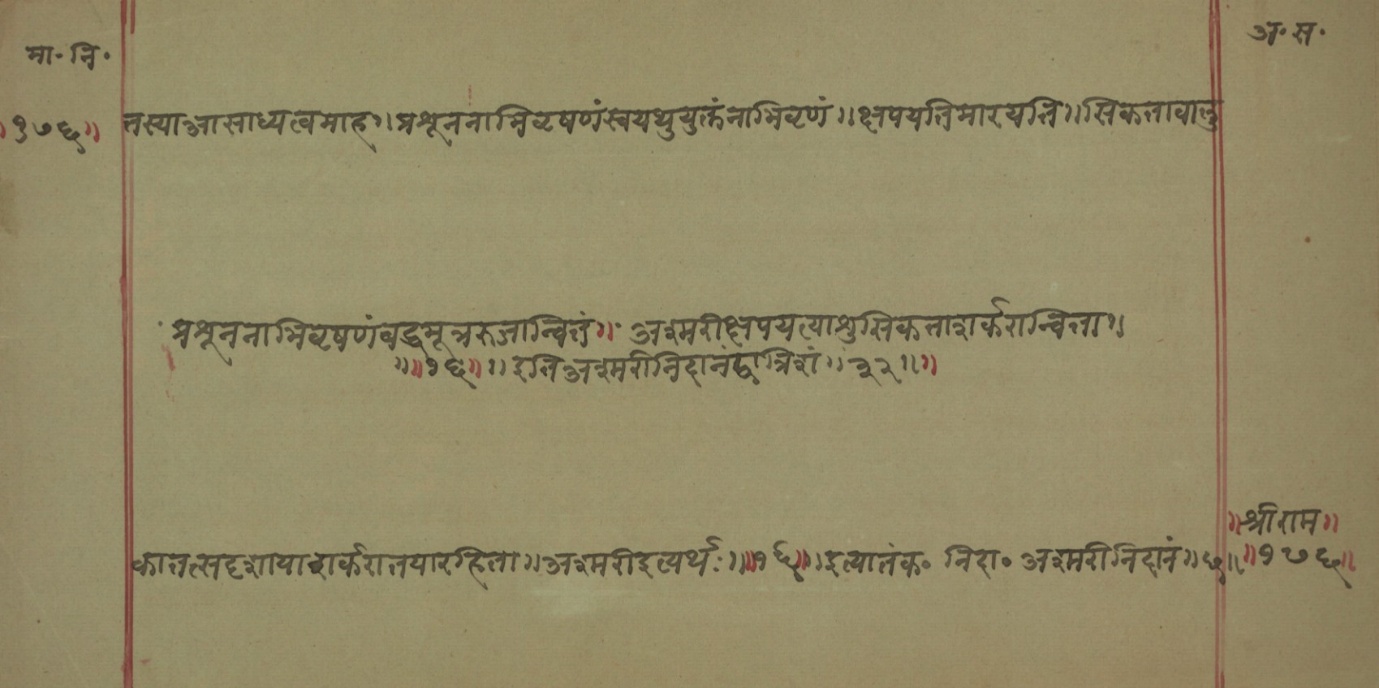 मा॰ नि॰
अ॰ स॰
॥१७६॥ तस्याआसाध्यत्वमाह॥प्रशूननाभिवृषणंस्वयथुयुक्तंनाभिवृणं॥क्षपयतिमारयति॥सिकतावालु
प्रशूननाभिवृषणंबद्धमूत्ररुजान्वितं॥ अश्मरीक्षपयत्याशुसिकताशर्करान्विता॥
॥॥१६॥॥ इतिअश्मरीनिदानंद्वात्रिशं॥ ३२॥॥
॥श्रीराम॥
कातत्सदृशायाशर्करातयारहिता॥अश्मरीइत्यर्थः॥॥१६॥॥इत्यातंक॰ निदा॰ अश्मरीनिदानं॥६॥ ॥१७६॥